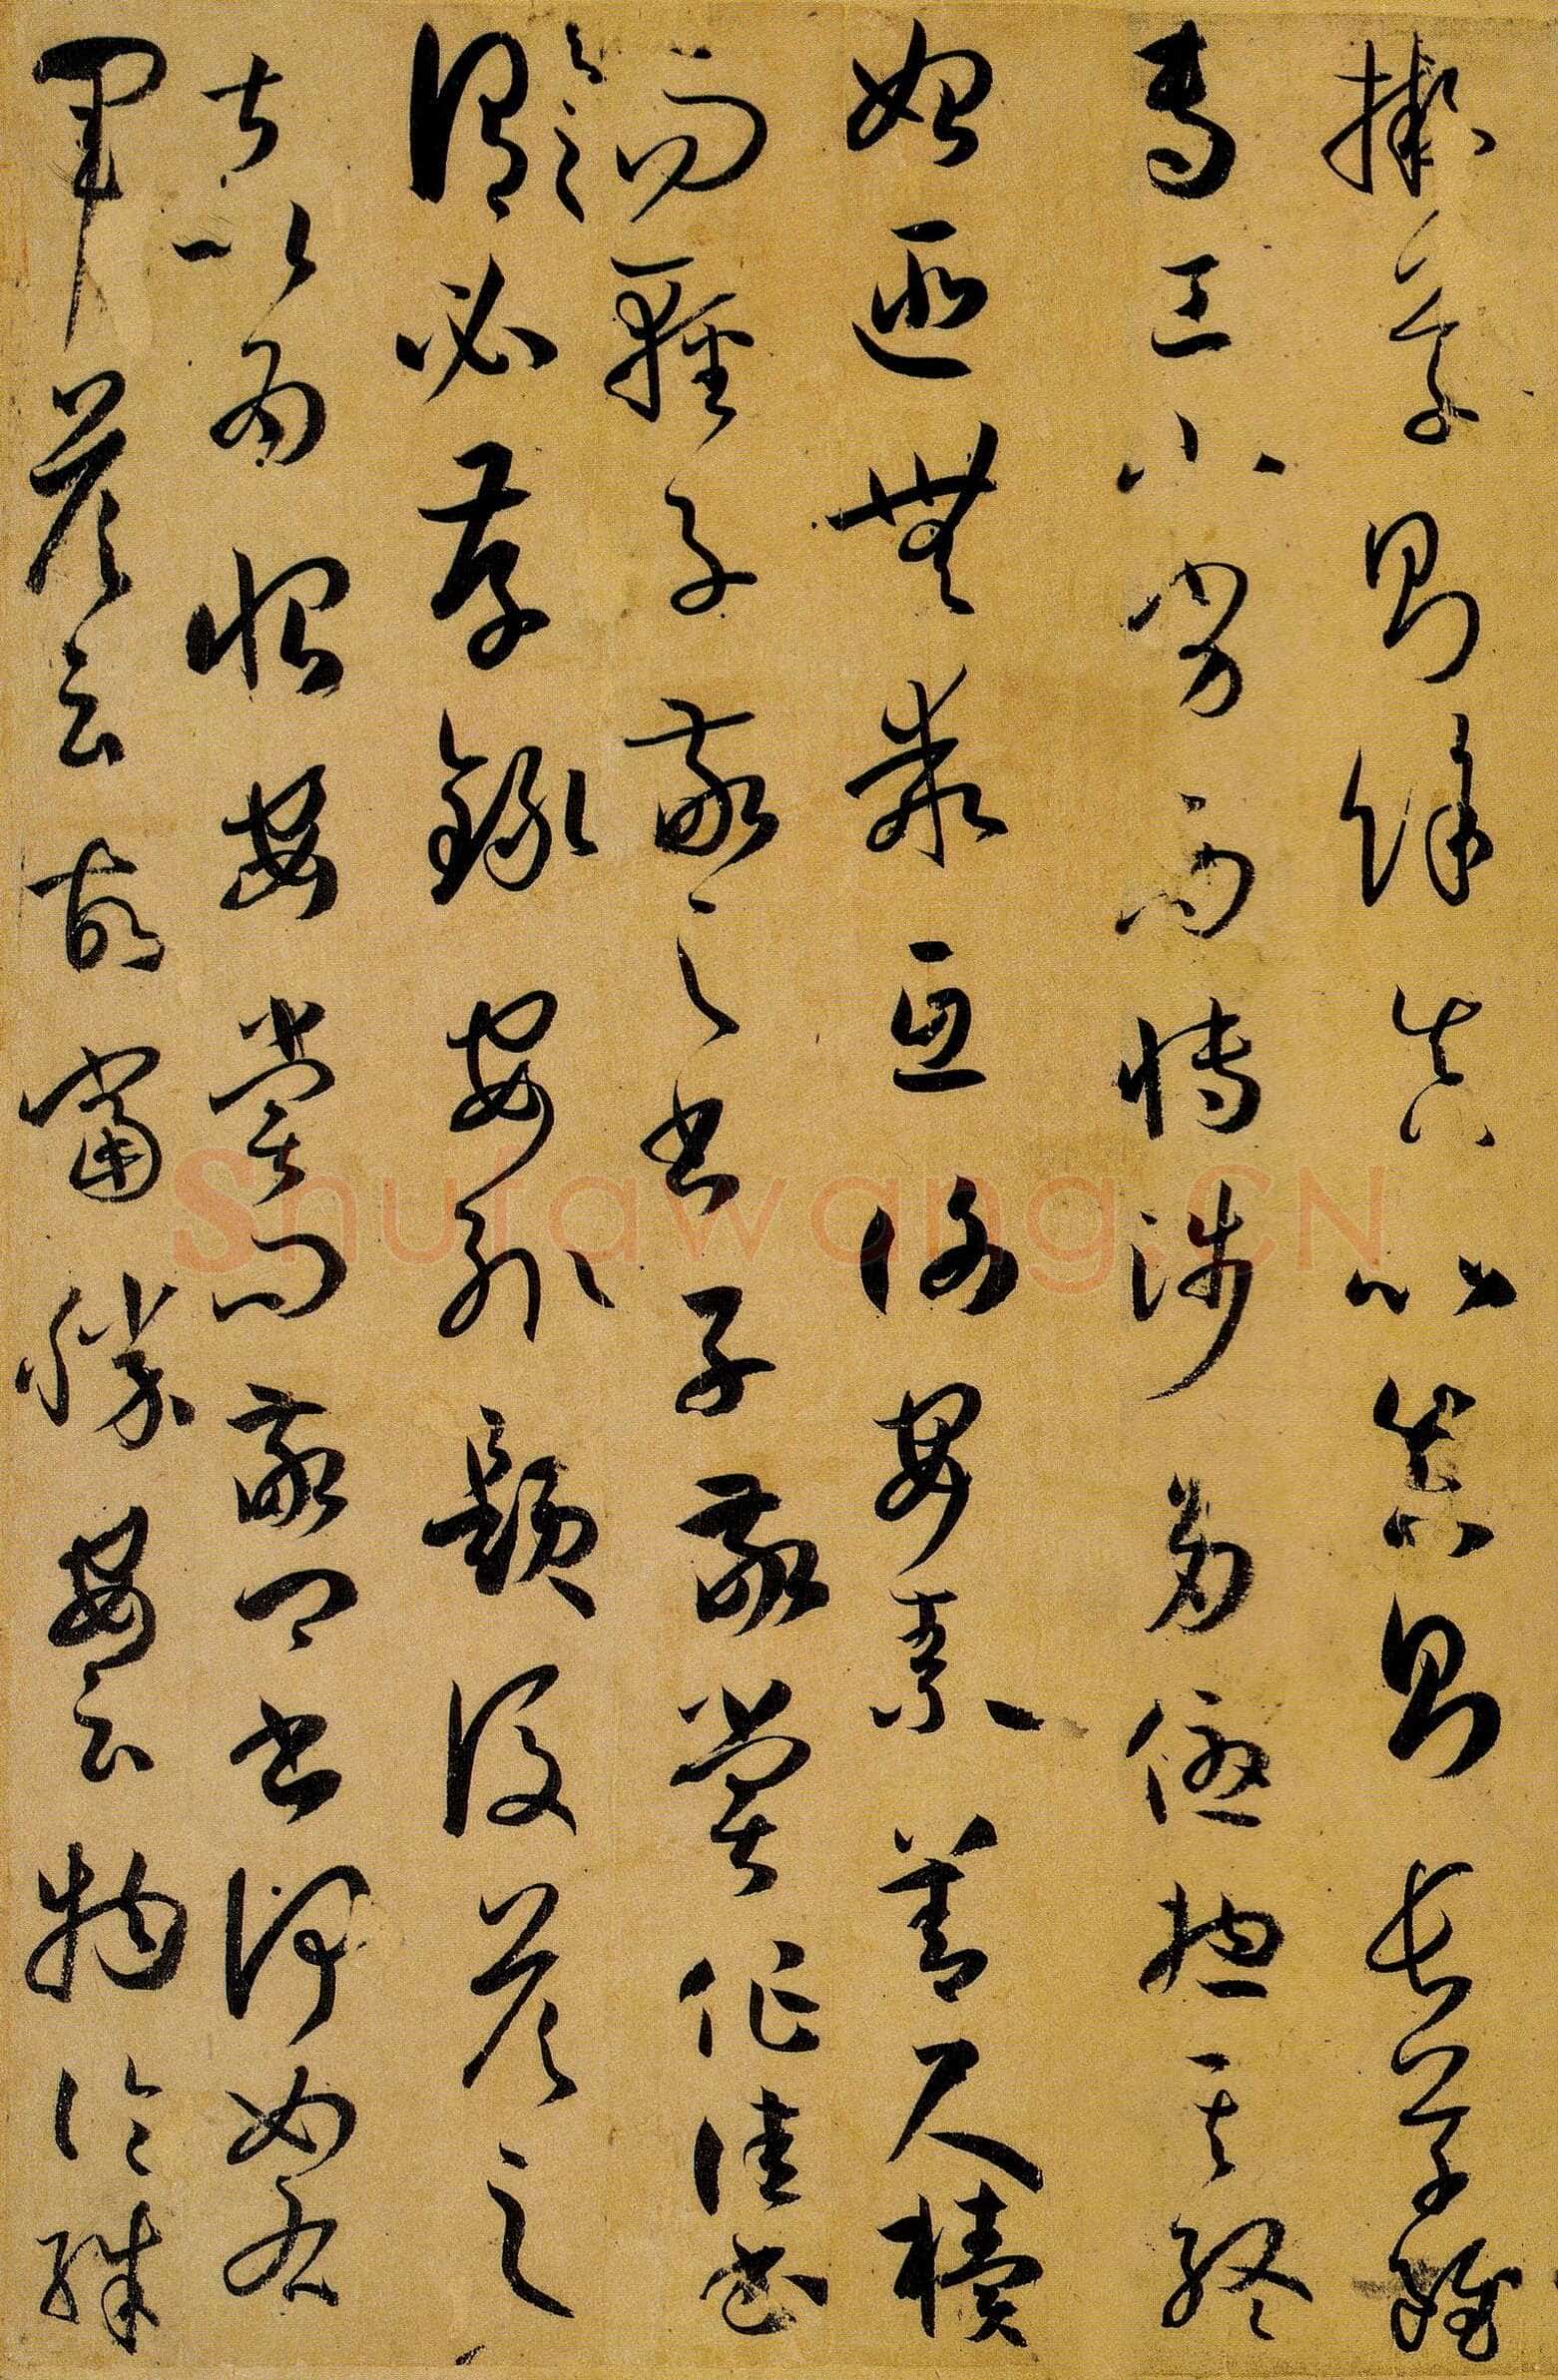 擬草則餘真比真則長草雖
專工小劣而博涉多優揔其終
始匪無乖互謝安素善尺牘
而輕子敬之書子敬嘗作佳書
與之謂必存錄安輒題後答之
甚以為恨安嘗問敬卿書何如右
軍答云故當勝安云物論殊
Shufawang.CN